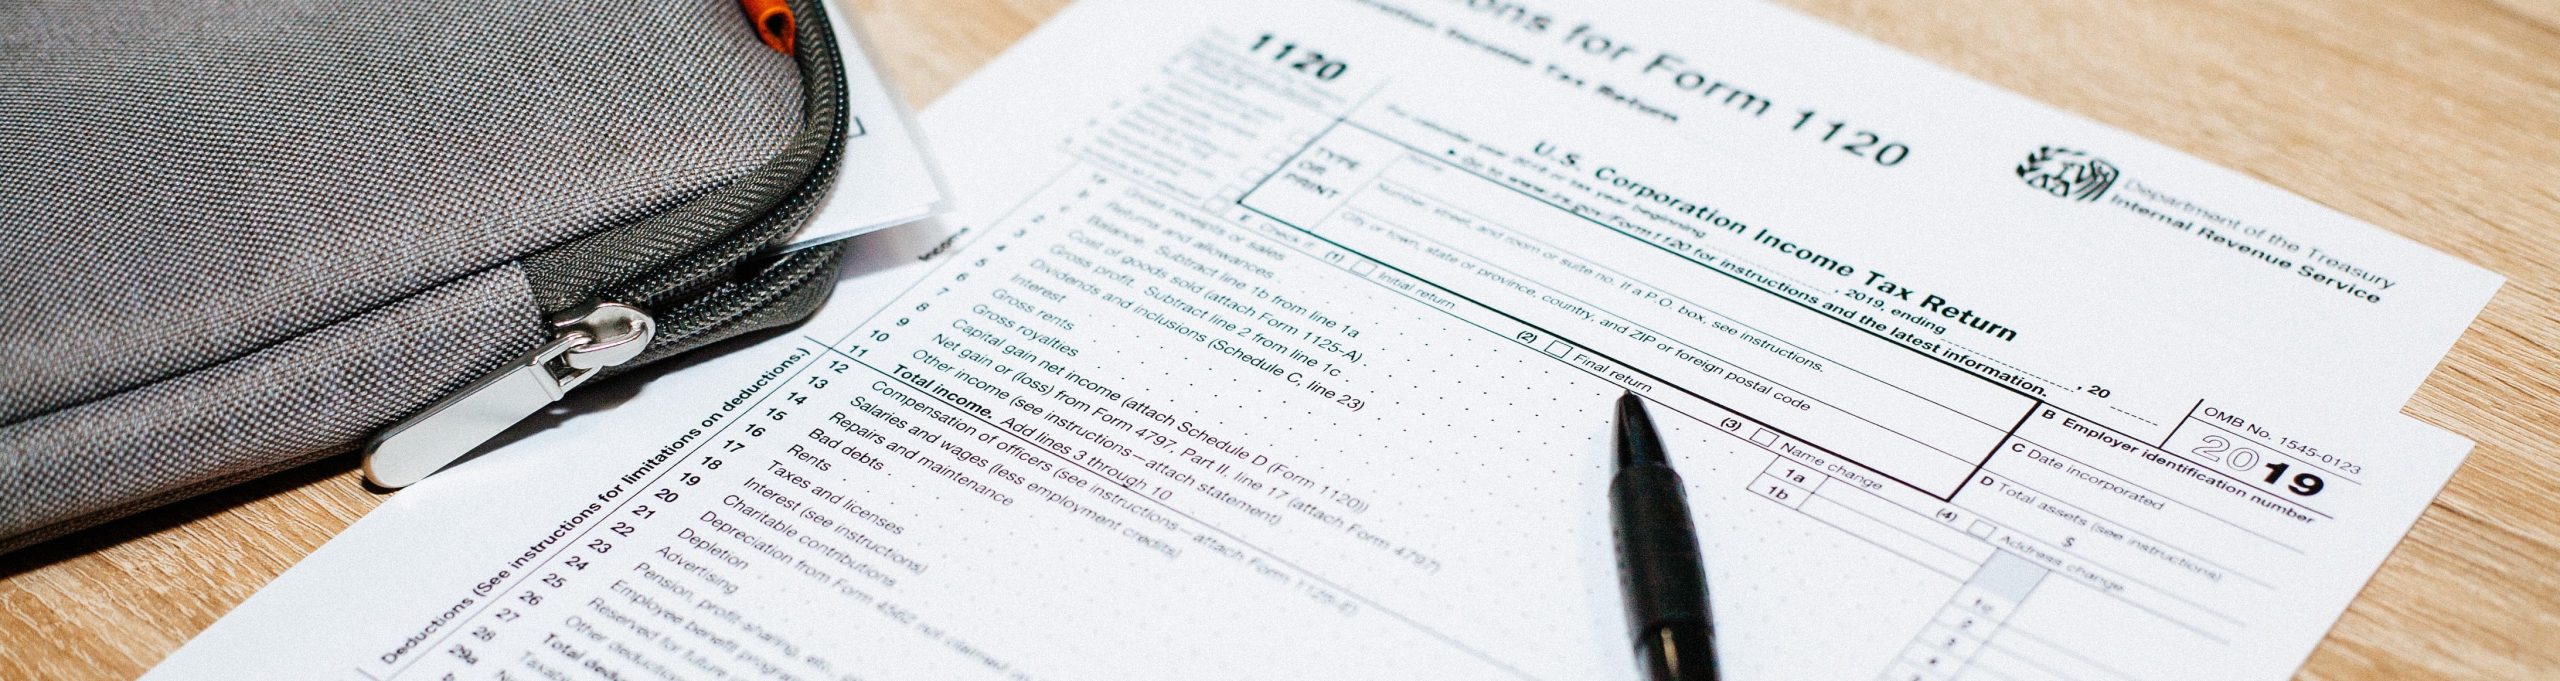 ons for Form 1120
Tax Return
Department of the Treasury
Internal Revenue Service
1120
U.S. Corporation Income Tax Return
, 2019, ending
, 20
Go to www.irs.gov/Form1120 for instructions and the latest information.
OMB No. 1545-0123
2019
TYPE
OR
PRINT
Name
Number, street, and room or suite no. If a P.O. box, see instructions.
City or town, state or province, country, and ZIP or foreign postal code
B Employer identification number
C Date incorporated
D Total assets (see instructions)
$
E Check if: (1) Initial return (2) Final return (3) Name change (4) Address change
1a Gross receipts or sales 1a
b Returns and allowances 1b
Balance. Subtract line 1b from line 1a 1c
2 Cost of goods sold (attach Form 1125-A) 2
3 Gross profit. Subtract line 2 from line 1c 3
4 Dividends and inclusions (Schedule C, line 23) 4
5 Interest
6 Gross rents
7 Gross royalties
8 Capital gain net income (attach Schedule D (Form 1120))
9 Net gain or (loss) from Form 4797, Part II, line 17 (attach Form 4797)
10 Other income (see instructions—attach statement)
11 Total income. Add lines 3 through 10
Deductions (See instructions for limitations on deductions.)
12 Compensation of officers (see instructions—attach Form 1125-E)
13 Salaries and wages (less employment credits)
14 Repairs and maintenance
15 Bad debts
16 Rents
17 Taxes and licenses
18 Interest (see instructions)
19 Charitable contributions
20 Depreciation from Form 4562 not claimed
21 Depletion
22 Advertising
23 Pension, profit-sharing, etc.
24 Employee benefit
25 Reserved for future
26 Other
27 Total
28
29a
b